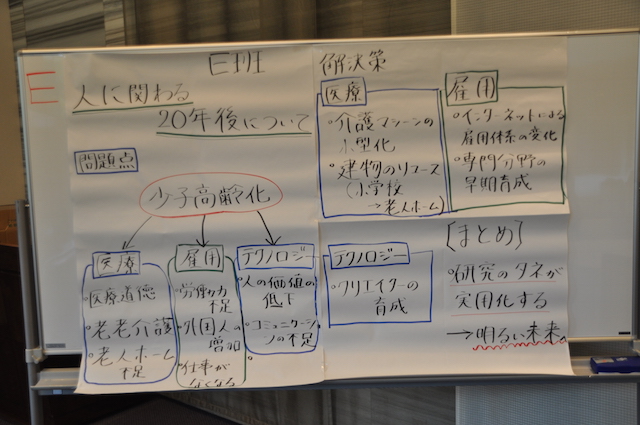 E
E班
人に関わる
20年後について
問題点
少子高齢化
医療
・医療道徳
・老老介護
・老人ホーム
不足
雇用
・労働力
不足
・外国人の
増加
・仕事が
なくなる
テクノロジー
・人の価値の
低下
・コミュニケーショ
ンの不足
解決策
医療
・介護マシーンの
小型化
・建物のリユース
(小学校
→老人ホーム)
雇用
・インターネットによる
雇用体系の変化
・専門分野の
早期育成
テクノロジー
・クリエイターの
育成
[まとめ]
・研究のタネが
実用化する
→明るい未来。